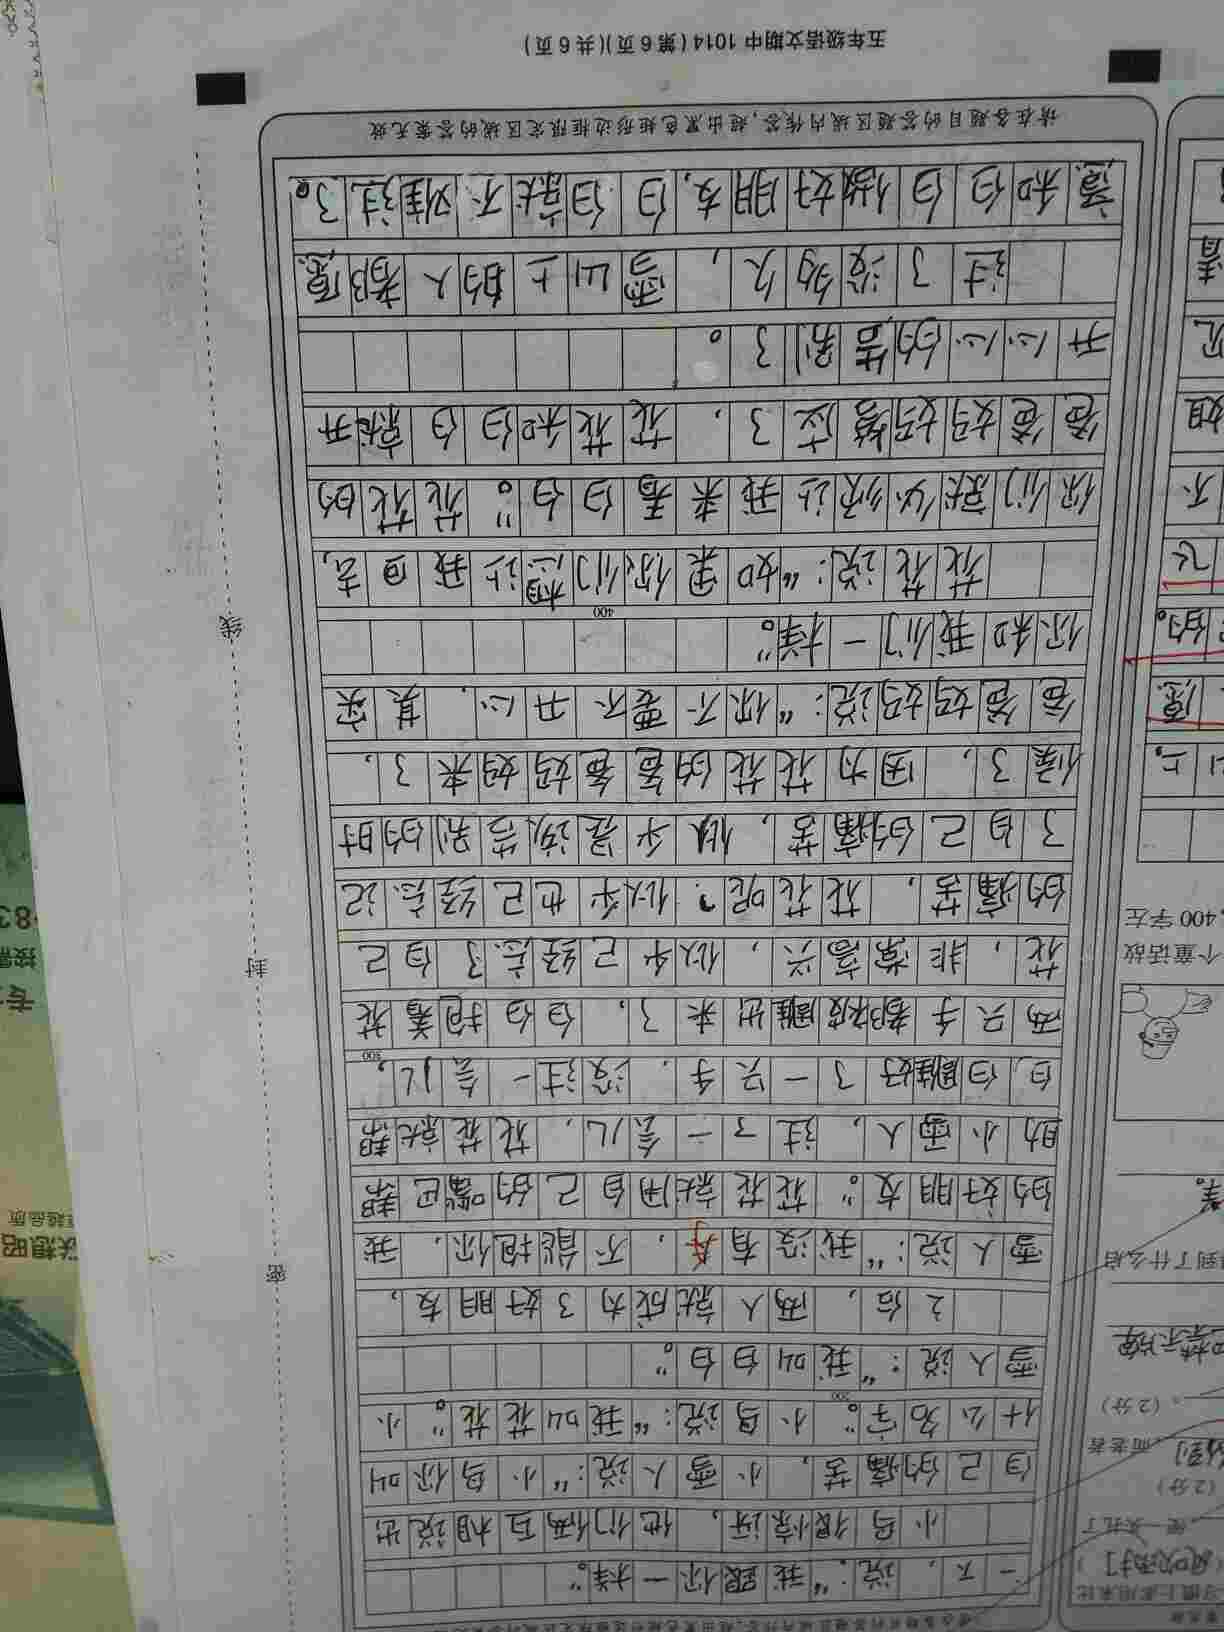 一下,说:“我跟你一样。”
小鸟很惊讶,他们俩互相说出
自己的痛苦,小雪人说:“小鸟你叫
什么名字。”小鸟说:“我叫花花。”小
200
雪人说:“我叫白白。”
之后,两人就成为了好朋友,
雪人说:“我没有手,不能抱你,我
的好朋友。”花花就用自己的嘴巴帮
助小雪人,过了一会儿,花花就帮
白白雕好了一只手,没过一会儿,
300
两只手都被雕出来了,白白抱着花
花,非常高兴,似乎已经忘了自己
的痛苦,花花呢?似乎也已经忘记
了自己的痛苦,似乎是该告别的时
候了,因为花花的爸爸妈妈来了,
爸爸妈妈说:“你不要不开心,其实
你和我们一样。”
400
花花说:“如果你们想让我回去,
你们就必须让我来看白白。”花花的
爸爸妈妈答应了,花花和白白就开
开心心的告别了。
过了没多久,雪山上的人都愿
意和白白做好朋友,白白就不难过了。
请在各题目的答题区域内作答,超出黑色矩形边框限定区域的答案无效
五年级语文期中 1014 (第 6 页)(共 6 页)
密
封
线
400 字左
个童话故
(2分)
(2分)